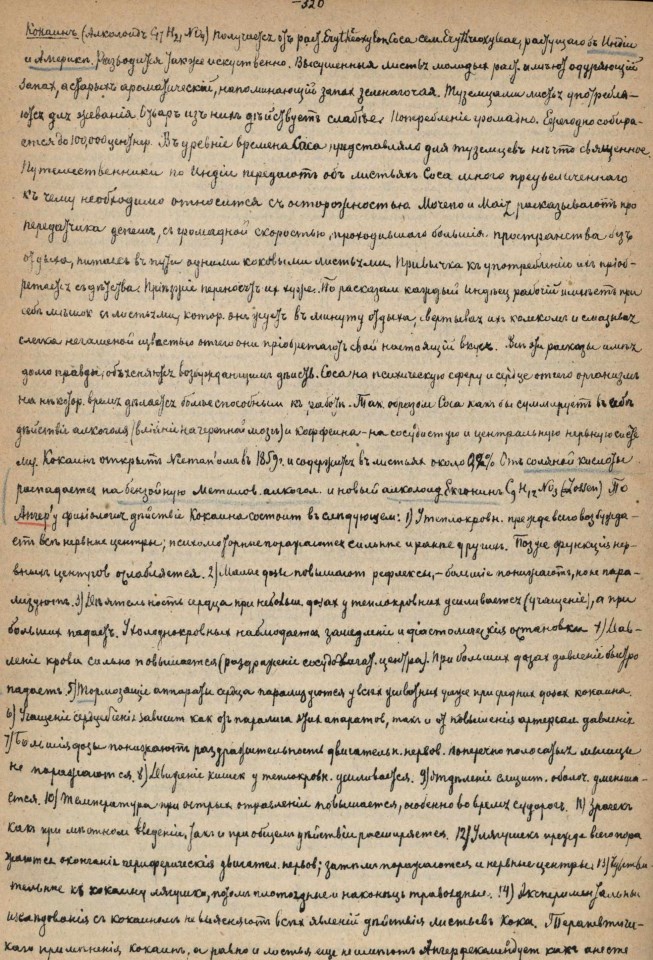 —320
Кокаинъ (Алколоидъ C17 H21 NO4) получается отъ раст. Erythroxylon Coca сем. Erythroxyleae, растущаго въ Индіи
и Америкѣ. Разводится также искуственно. Высушенныя листья молодыхъ раст. имѣютъ одуряющій
запахъ, а старыхъ ароматическій, напоминающій запахъ зеленаго чая. Туземцами листья употребля-
ются для жеванія. Отваръ изъ нихъ дѣйствуетъ слабѣе. Потребленіе громадно. Ежегодно собира-
ется до 100,000 центнер. Въ древнія времена Coca представляло для туземцевъ нѣчто священное.
Путешественники по Индіи передаютъ объ листьяхъ Coca много преувеличеннаго
къ чему необходимо относится съ осторожностью. и разсказываютъ про
передатчика депешъ, съ громадной скоростью, проходившаго большія пространства безъ
отдыха, питаясь въ пути одними коковыми листьями. Привычка къ употребленію ихъ пріоб-
ретается съ дѣтства. Пріѣзжіе переносятъ ихъ хуже. По расказамъ каждый Индѣецъ рабочій имѣетъ при
себѣ мѣшокъ съ листьями, котор. онъ жуетъ въ минуту отдыха, свертывая ихъ комкомъ и смазывая
слегка негашеной известью отчего они пріобретаютъ свой настоящій вкусъ. Всѣ эти расказы имѣютъ
долю правды, объясняются возбуждающимъ дѣйств. Coca на психическую сферу и сердце отчего организмъ
на нѣкотор. время дѣлается болѣе способнымъ къ работѣ. Так. образомъ Coca какъ бы суммируетъ въ себѣ
дѣйствіе алкоголя (вліяніе на головной мозгъ) и кофеина – на сосудистую и центральную нервную систе-
му. Кокаинъ открытъ въ 1859г. и содержится въ листьяхъ около 0,2%. Отъ соляной кислоты
распадается на бензойную метилов. алкогол. и новый алкалоидъ Экгонинъ C9 H15 NO3 (Lossen) По
Анрепу физіологич. дѣйствіе Кокаина состоитъ въ слѣдующемъ: 1) У теплокровн. прежде всего возбужда-
етъ всѣ нервные центры; психомоторные поражаются сильнѣе и ранѣе другихъ. Позже функція нер-
вныхъ центровъ ослабляется. 2) Малыя дозы повышаютъ рефлексы, – большіе понижаютъ, но не пара-
лизуютъ. 3) Дѣятельность сердца при небольш. дозахъ у теплокровныхъ усиливается (учащеніе), а при
большихъ падаетъ. У холоднокровныхъ наблюдается замедленіе и діастолическія остановки 4) Дав-
леніе крови сильно повышается (раздраженіе сосудодвигат. центра). При большихъ дозахъ давленіе быстро
падаетъ. 5) Тормозящіе аппараты сердца парализуются у всѣхъ животныхъ уже при среднихъ дозахъ кокаина.
6) Учащеніе сердцебіенія зависитъ какъ отъ паралича этихъ апаратовъ, такъ и отъ повышенія артеріал. давленія
7) Большія дозы понижаютъ раздражительность двигательн. нервов. поперечно полосатыхъ мышцы
не поражаются. 8) Движеніе кишекъ у теплокровн. усиливается. 9) Отдѣленіе слизист. оболоч. уменьша-
ется. 10) Температура при острыхъ отравленіи повышается, особенно во время судорогъ. 11) Зрачекъ
какъ при мѣстномъ введеніи, такъ и при общемъ дѣйствіи расширяется. 12) У лягушекъ прежде всего пора-
жаются окончанія периферическія двигател. нервовъ; затѣмъ поражаются и нервные центры. 13) Чувстви-
тельнѣе къ кокаину лягушки, потомъ плотоядные и наконецъ травоядные. 14) Эксперименталь­ныя
изслѣдованія съ кокаиномъ не выясняютъ всѣхъ явленій дѣйствія листьевъ Кока. Терапевтиче-
каго примѣненія кокаинъ, а равно и листья еще не имѣютъ. Анрепъ рекомендуетъ какъ анесте